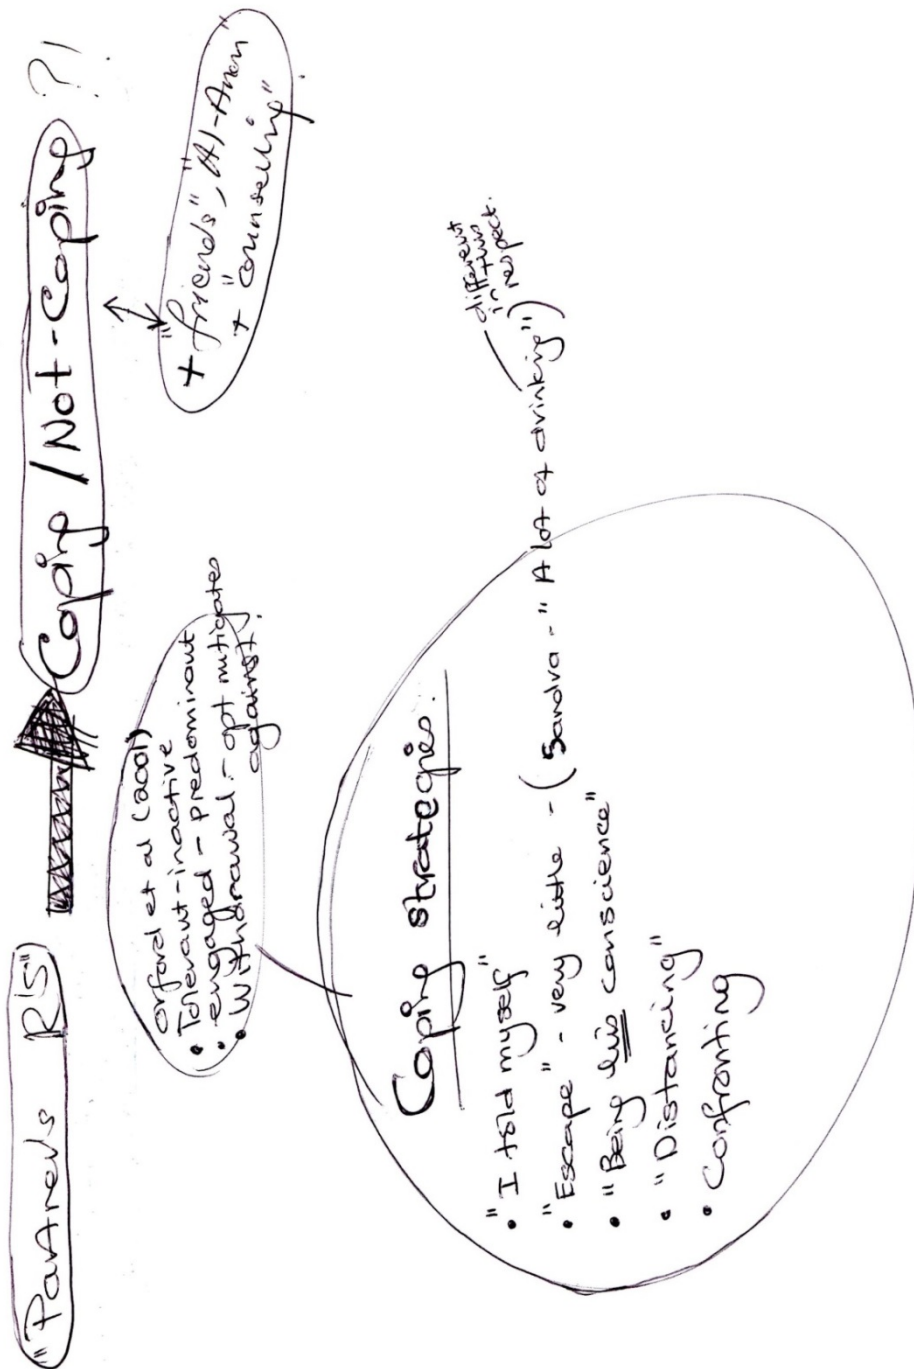 "Partners R'S"
Coping / Not-Coping ?!
+ "friends", "Al-Anon"
+ "counselling"
Orford et al (2001)
• Tolerant-inactive
• engaged - predominant
• Withdrawal - opt mitigates
against.
Coping strategies.
• "I told myself"
• "Escape" - very little - (Sandra - "A lot of drinking")
different
in this
respect.
• "Being his conscience"
• "Distancing"
• Confronting